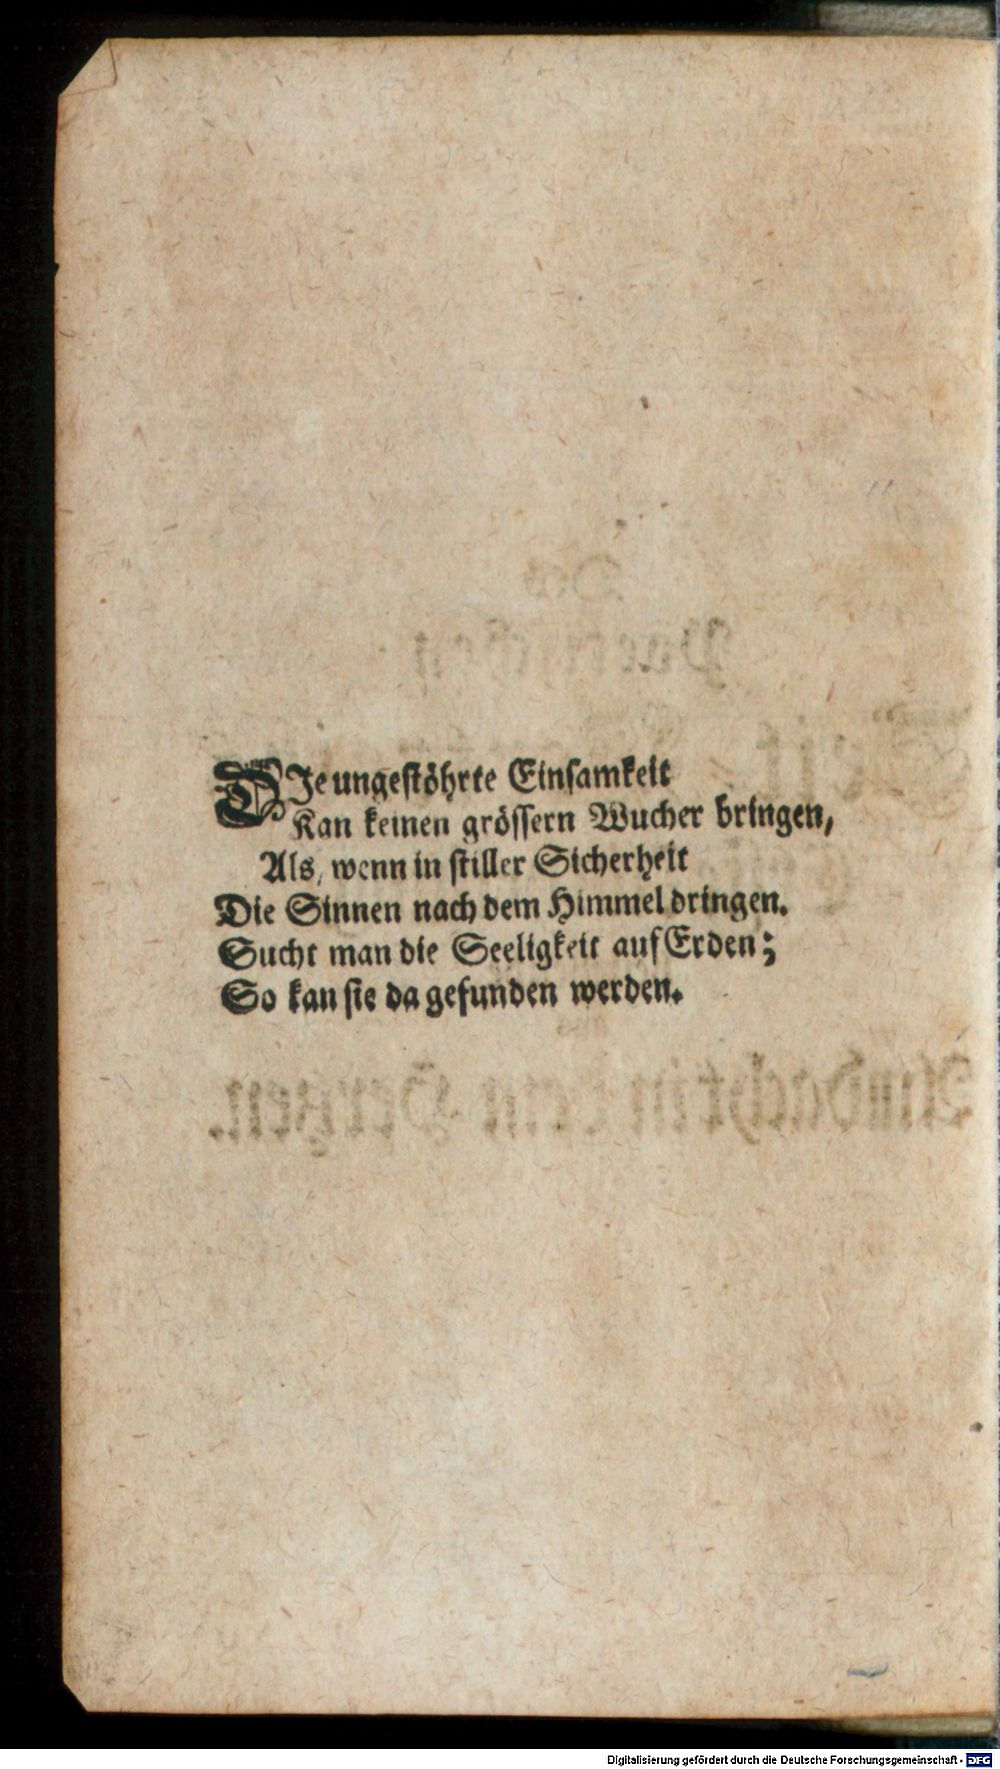 DJe ungestöhrte Einsamkeit
Kan keinen grössern Wucher bringen,
Als, wenn in stiller Sicherheit
Die Sinnen nach dem Himmel dringen.
Sucht man die Seeligkeit auf Erden;
So kan sie da gefunden werden.
Digitalisierung gefördert durch die Deutsche Forschungsgemeinschaft - DFG